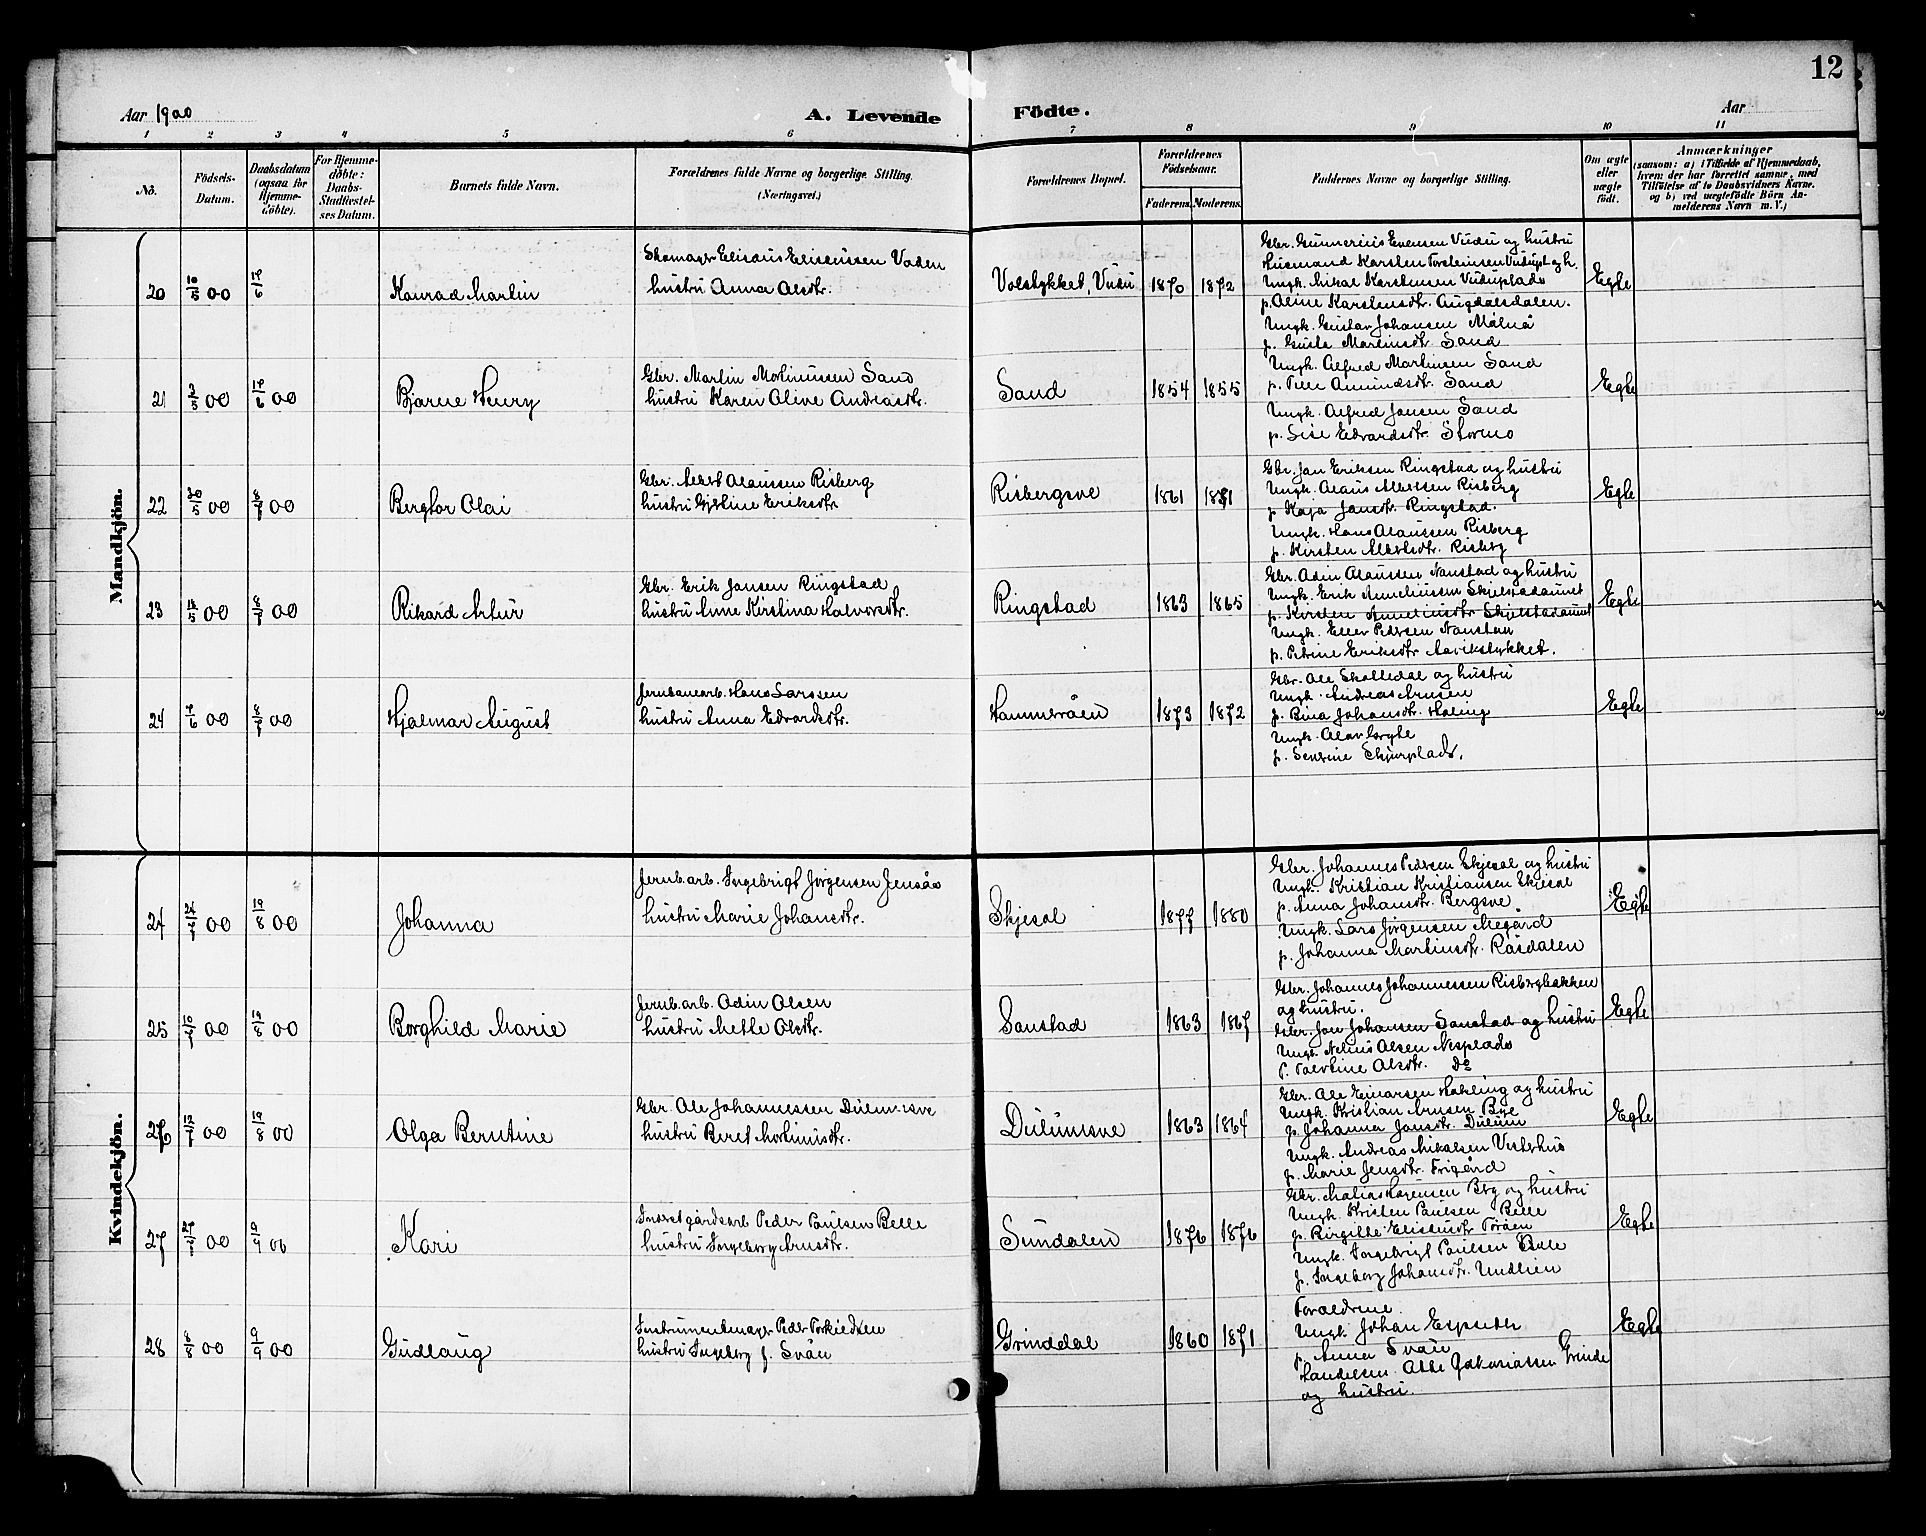 12
Aar 1900
A. Levende
Födte.
Aar
1 2 3 4 5 6 7 8 9 10 11
No.
Födsels-
Datum.
Daabsdatum
(ogsaa for
Hjemme-
döbte).
For Hjemme-
döbte:
Daabs-
Stadfæstel-
ses Datum.
Barnets fulde Navn.
Forældrenes fulde Navne og borgerlige Stilling.
(Næringsvei.)
Forældrenes Bopæl.
Forældrenes
Födselsaar.
Faderens. Moderens.
Faddernes Navne og borgerlige Stilling.
Om ægte
eller
uægte
födt.
Anmærkninger
(saasom: a) i Tilfælde af Hjemmedaab,
hvem der har forrettet samme, med
Tilföielse af to Daabsvidners Navne.
og b) ved uægtefödte Börn An-
melderens Navn m. V.)
Mandkjön.
20 10/5 00 17/6
Konrad Martin
Skomager Elisæus Eliseussen Vaden
hustru Anna Olsdtr.
Volstykket, Vudu 1870 1872
Gbr. Gunnerius Evensen Vudu og hustru
Husmand Karsten Torsteinsen Vudupl og h.
Ungk. Mikal Karstensen Vuduplads
p. Oline Karstensdtr. Augdalsdalen.
Ungk. Gustav Johansen Målnå
p. Gusta Martinsdtr. Sand
Egte
21 3/5 00 17/6 00
Bjarne Henry
Gbr. Martin Mortinussen Sand
hustru Karen Oline Andreasdtr.
Sand 1854 1855
Ungk. Alfred Martinsen Sand
p. Amundsdtr. Sand
Ungk. Alfred Jansen Sand
p. Lise Edvardsdtr. Stormo
Egte
22 20/5 00 8/7 00
Bergtor Olai
Gbr. Albert Olaussen Risberg
hustru Gjertine Eriksdtr
Risbergsve 1861 1871
Gbr. Jan Eriksen Ringstad og hustru
Ungk. Olaus Albertsen Risberg
p. Kaja Jansdtr. Ringstad.
Ungk. Hans Olaussen Risberg
p. Kirsten Albertsdtr. Risberg
Egte
23 15/5 00 8/7 00
Rikard Artur
Gbr. Erik Jansen Ringstad
hustru Anne Kirstina Halvorsdtr.
Ringstad 1863 1865
Gbr. Odin Olaussen Nanstad og hustru
Ungk. Erik Anneliussen Skjelstadaunet
p. Kirsten Anneliusdtr Skjelstadaunet
Ungk. Eller Pedersen Nanstan
p. Petrine Eriksdtr Mariksstykket.
Egte
24 7/6 00 8/7 00
Hjalmar August
Jernbanearb. Hans Larssen
hustru Anna Edvardsdtr.
Hammeråen 1873 1872
Gbr. Ole Skalledal og hustru
Ungk. Andreas Arnsen
p. Bina Johansdtr. Haling
Ungk. Olav
p. Skjurplads.
Egte
Kvindekjön.
24 24/7 00 19/8 00
Johanna
Jernb.arb. Ingebrigt Jørgensen Jensås
hustru Marie Johansdtr.
Skjesol 1877 1880
Gbr. Johannes Pedersen Skjesol og hustru
Ungk. Kristian Kristiansen Skjesol
p. Anna Johansdtr. Bergsve
Ungk. Lars Jørgensen Megård
p. Johanna Martinsdtr. Råsdalen
Egte
25 10/7 00 19/8 00
Borghild Marie
Jernb.arb. Odin Olsen
hustru Mette Olsdtr.
Sanstad 1863 1867
Gbr. Johannes Johannessen Risbergbakken
og hustru.
Gbr. Jon Johansen Sanstad og hustru
Ungk. Nelius Olsen Nesplads
p. Olsdtr. Do
Egte
26 12/7 00 19/8 00
Olga Berntine
Gbr. Ole Johannessen Dulumsve
hustru Beret Mortinusdtr.
Dulumsve 1863 1864
Gbr. Ole Einarsen Hakling og hustru
Ungk. Kristian Arnsen Bye
p. Johanna Jansdtr. Dulum
Ungk. Andreas Mikalsen Vesterhus
p. Marie Jensdtr. Frigård
Egte
27 29/7 00 9/9 00
Kari
Peder Paulsen Belle
hustru Ingeborg Arnsdtr.
Sundalen 1876 1876
Gbr. Matias Larensen Berg og hustru
Ungk. Kristen Paulsen Belle
p. Birgitte Elisæusdtr Toråen
Ungk. Ingebrigt Paulsen Belle
p. Ingeborg Johansdtr. Undlien
Egte
28 8/8 00 9/9 00
Gudlaug
Instrumentmager Peder Torkildsen
hustru Ingeborg f. Svåu
Grinddal 1860 1871
Forældrene.
Ungk. Johan Espseter
p. Anna Svåu
Handelsm. Atle Zakariassen Grinde
og hustru.
Egte